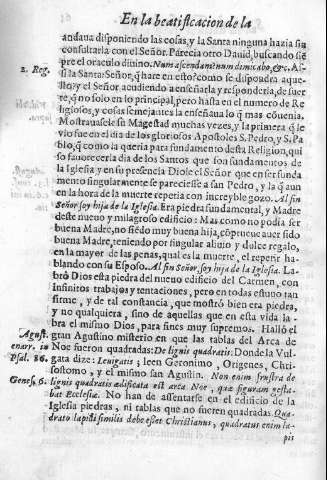 En la beatificacion de la
andaua disponiendo las cosas, y la Santa ninguna hazia sin
consultarla con el Señor. Parecia otro Dauid, buscando siē
2. Reg.
pre el oraculo diuino. Num ascendam? num dimicabo, &c. Assi
la Santa: Señor, q̃ hare en esto? como se dispondra aque-
llo? y el Señor acudiendo a enseñarla y responderla, de suer
te, q̃ no solo en lo principal, pero hasta en el numero de Re
ligiosos, y cosas semejantes la enseñaua lo q̃ mas cōuenia.
Mostrauasele su Magestad muchas vezes, y la primera q̃ le
vio fue en el dia de los gloriosos Apostoles S. Pedro, y S. Pa
blo, q̃ como la queria para fundamento desta Religion, qui
so fauorecerla dia de los Santos que son fundamentos de
la Iglesia y en su presencia Diole el Señor que en ser funda
mento singularmente se pareciesse a san Pedro, y la q̃ aun
en la hora de la muerte repetia con increyble gozo. Al fin
Señor soy hija de la Iglesia. Era piedra fundamental, y Madre
deste nueuo y milagroso edificio: Mas como no podia ser
buena Madre, no siēdo muy buena hija, cōprueue auer sido
buena Madre, teniendo por singular aliuio y dulce regalo,
en la mayor de las penas, qual es la muerte, el repetir ha-
blando con su Esposo. Al fin Señor, soy hija de la Iglesia. La-
brò Dios esta piedra del nueuo edificio del Carmen, con
infinitos trabajos y tentaciones, pero en todas estuuo tan
firme, y de tal constancia, que mostrò bien era piedra,
y no qualquiera, sino de aquellas que en esta vida la-
bra el mismo Dios, para fines muy supremos. Hallò el
August.
gran Augustino misterio en que las tablas del Arca de
enarr. in
Noe fueron quadradas: De lignis quadratis: Donde la Vul-
Psal. 86.
gata dize: Leuigatis; leen Geronimo, Origenes, Chri-
sostomo, y el mismo san Agustin. Non enim frustra de
Genes. 6.
lignis quadratis ædificata est arca Noe, quæ figuram gesta-
bat Ecclesiæ. No han de assentarse en el edificio de la
Iglesia piedras, ni tablas que no fueren quadradas. Qua-
drato lapidi similis debe esset Christianus, quadratus enim la-
pis